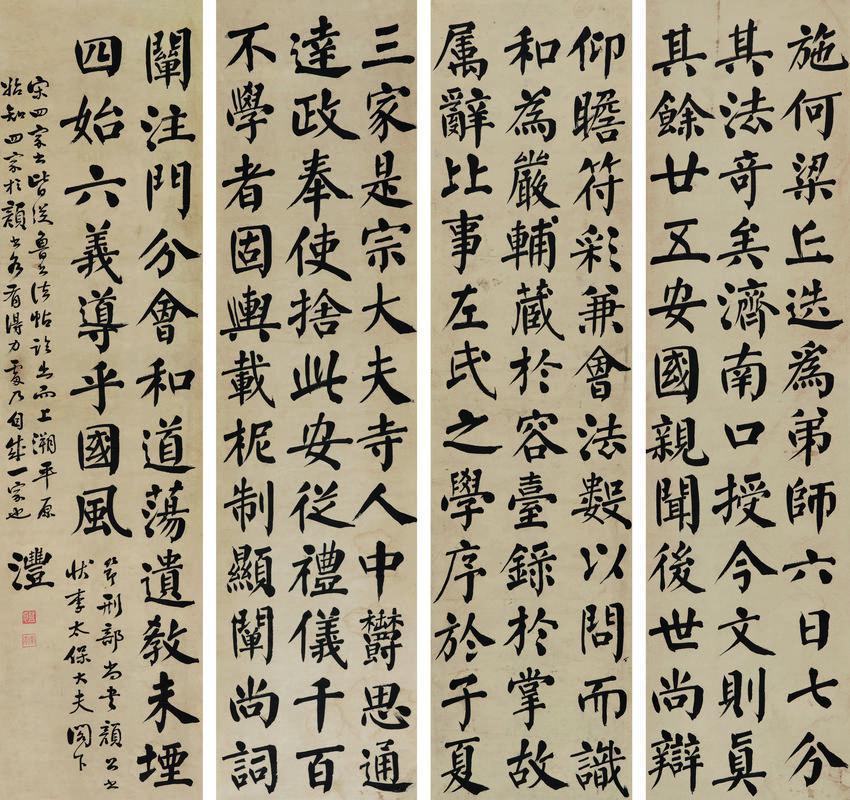 施何梁丘迭為弟師六日七分
其法奇矣濟南口授今文則真
其餘廿五安國親聞後世尚辯
仰瞻符彩兼會法數以問而識
和為嚴輔蔵於容臺錄於掌故
属辭比事左氏之學序於子夏
三家是宗大夫寺人中欝思通
達政奉使捨此安從禮儀千百
不學者固輿載柅制顯闡尚詞
闡注門分會和道蕩遺教未堙
四始六義導乎國風
刑部尚書顏公上
狀李太保大夫閤下
宋四家書皆從魯公法帖出而上溯平原
始知四家於顏書各有得力處乃自成一家也
灃